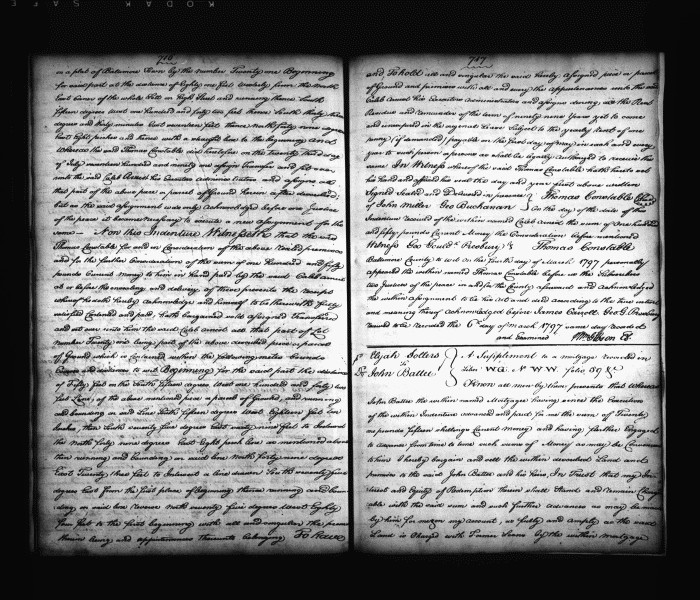 KODAK SAFE
on a plat of Baltimore Town by the number Twenty one Beginning
for said part at the distance of Eighty one feet Westerly from the North
East corner of the whole Lot on High Street and running thence South
fifteen degrees West one hundred and forty two feet thence South thirty three
degrees and thence North forty nine degrees
East Eight perches and thence with a straight line to the beginning And
Whereas the said Thomas Constable did heretofore on the twenty third day
of July seventeen hundred and ninety six assign Transfer and set over
unto the said Caleb his Executors Administrators and assigns all
that part of the above piece or parcel of Ground herein after described
but as the said assignment was only acknowledged before one Justice
of the peace it became necessary to execute a new assignment for the
same — Now this Indenture Witnesseth that the said
Thomas Constable for and in Consideration of the above recited premises
and for the further Consideration of the sum of one hundred and fifty
pounds Current money to him in hand paid by the said Caleb
at or before the ensealing and delivery of these presents the receipt
whereof he doth hereby acknowledge and himself to be therewith fully
satisfied Contented and paid Hath bargained sold assigned Transferred
and set over unto him the said Caleb all that part of Lot
number Twenty one being part of the above described piece or parcel
of Ground which is contained within the following metes bounds
Courses and distances to wit Beginning for the said part the distance
of Fifty feet on the South fifteen degrees West one hundred and forty two
feet Line, of the above mentioned piece or parcel of Ground, and running
and bounding on said Line South fifteen degrees West Eighteen feet six
Inches, then South seventy five degrees East sixty nine feet to Intersect
the North forty nine degrees East Eight perch line as mentioned above
then running and bounding on said line North forty nine degrees
East Twenty three feet to Intersect a line drawn South seventy five
degrees East from the first place of beginning thence running and bound
ding on said line reverse North seventy five degrees West Eighty
four feet to the first beginning with all and singular the prem
thereon being and appurtenances thereunto belonging To have
747
and To hold all and singular the said hereby assigned piece or parcel
of Ground and premises with all and every the appurtenances unto the said
Caleb his Executors Administrators and assigns during all the Rest
Residue and remainder of the term of ninety nine years yet to come
and unexpired in the original Lease Subject to the yearly Rent of one
penny (if demanded) payable on the last day of may in each and every
year to such person or persons as shall be legally authorized to receive the
same In Witness whereof the said Thomas Constable hath hereto set
his hand and affixed his seal the day and year first above written
Signed Sealed and Delivered in presence of Thomas Constable Seal
John Miller Geo Buchanan On the day of the date of this
Indenture received of the within named Caleb the sum of One hundred
and fifty pounds Current Money the Consideration before mentioned
Witness Geo. Gould. Presbury Thomas Constable
Baltimore County to wit On the fourth day of March 1797 personally
appeared the within named Thomas Constable before us the Subscribers
two Justices of the peace in and for the County aforesaid and acknowledged
the within assignment to be his Act and Deed according to the true intent
and meaning thereof Acknowledged before James Carroll Geo. G. Presbury
received to be recorded the 6th day of March 1797 same day recorded
and Examined Wm Gibson Clk
Elijah Sollers
To
John Battee
A Supplement to a mortgage recorded in
Liber W.G. No W.W. folio 89 &c
Know all men by these presents that Whereas
John Battee the within named Mortgagee having since the Execution
of the within Indenture advanced and paid for me the sum of Twenty
pounds fifteen shillings Current Money and having further Engaged
to advance from time to time such sums of Money as may be Convenient
to him I hereby bargain and sell the within described Land and
premises to the said John Battee and his Heirs, In Trust that my In-
terest and Equity of Redemption therein shall Stand and Remain Charge
able with the said sum and such further advances as may be made
by him for on my account, as fully and amply as the said
Land is Charged with Former Sums by the within mortgage